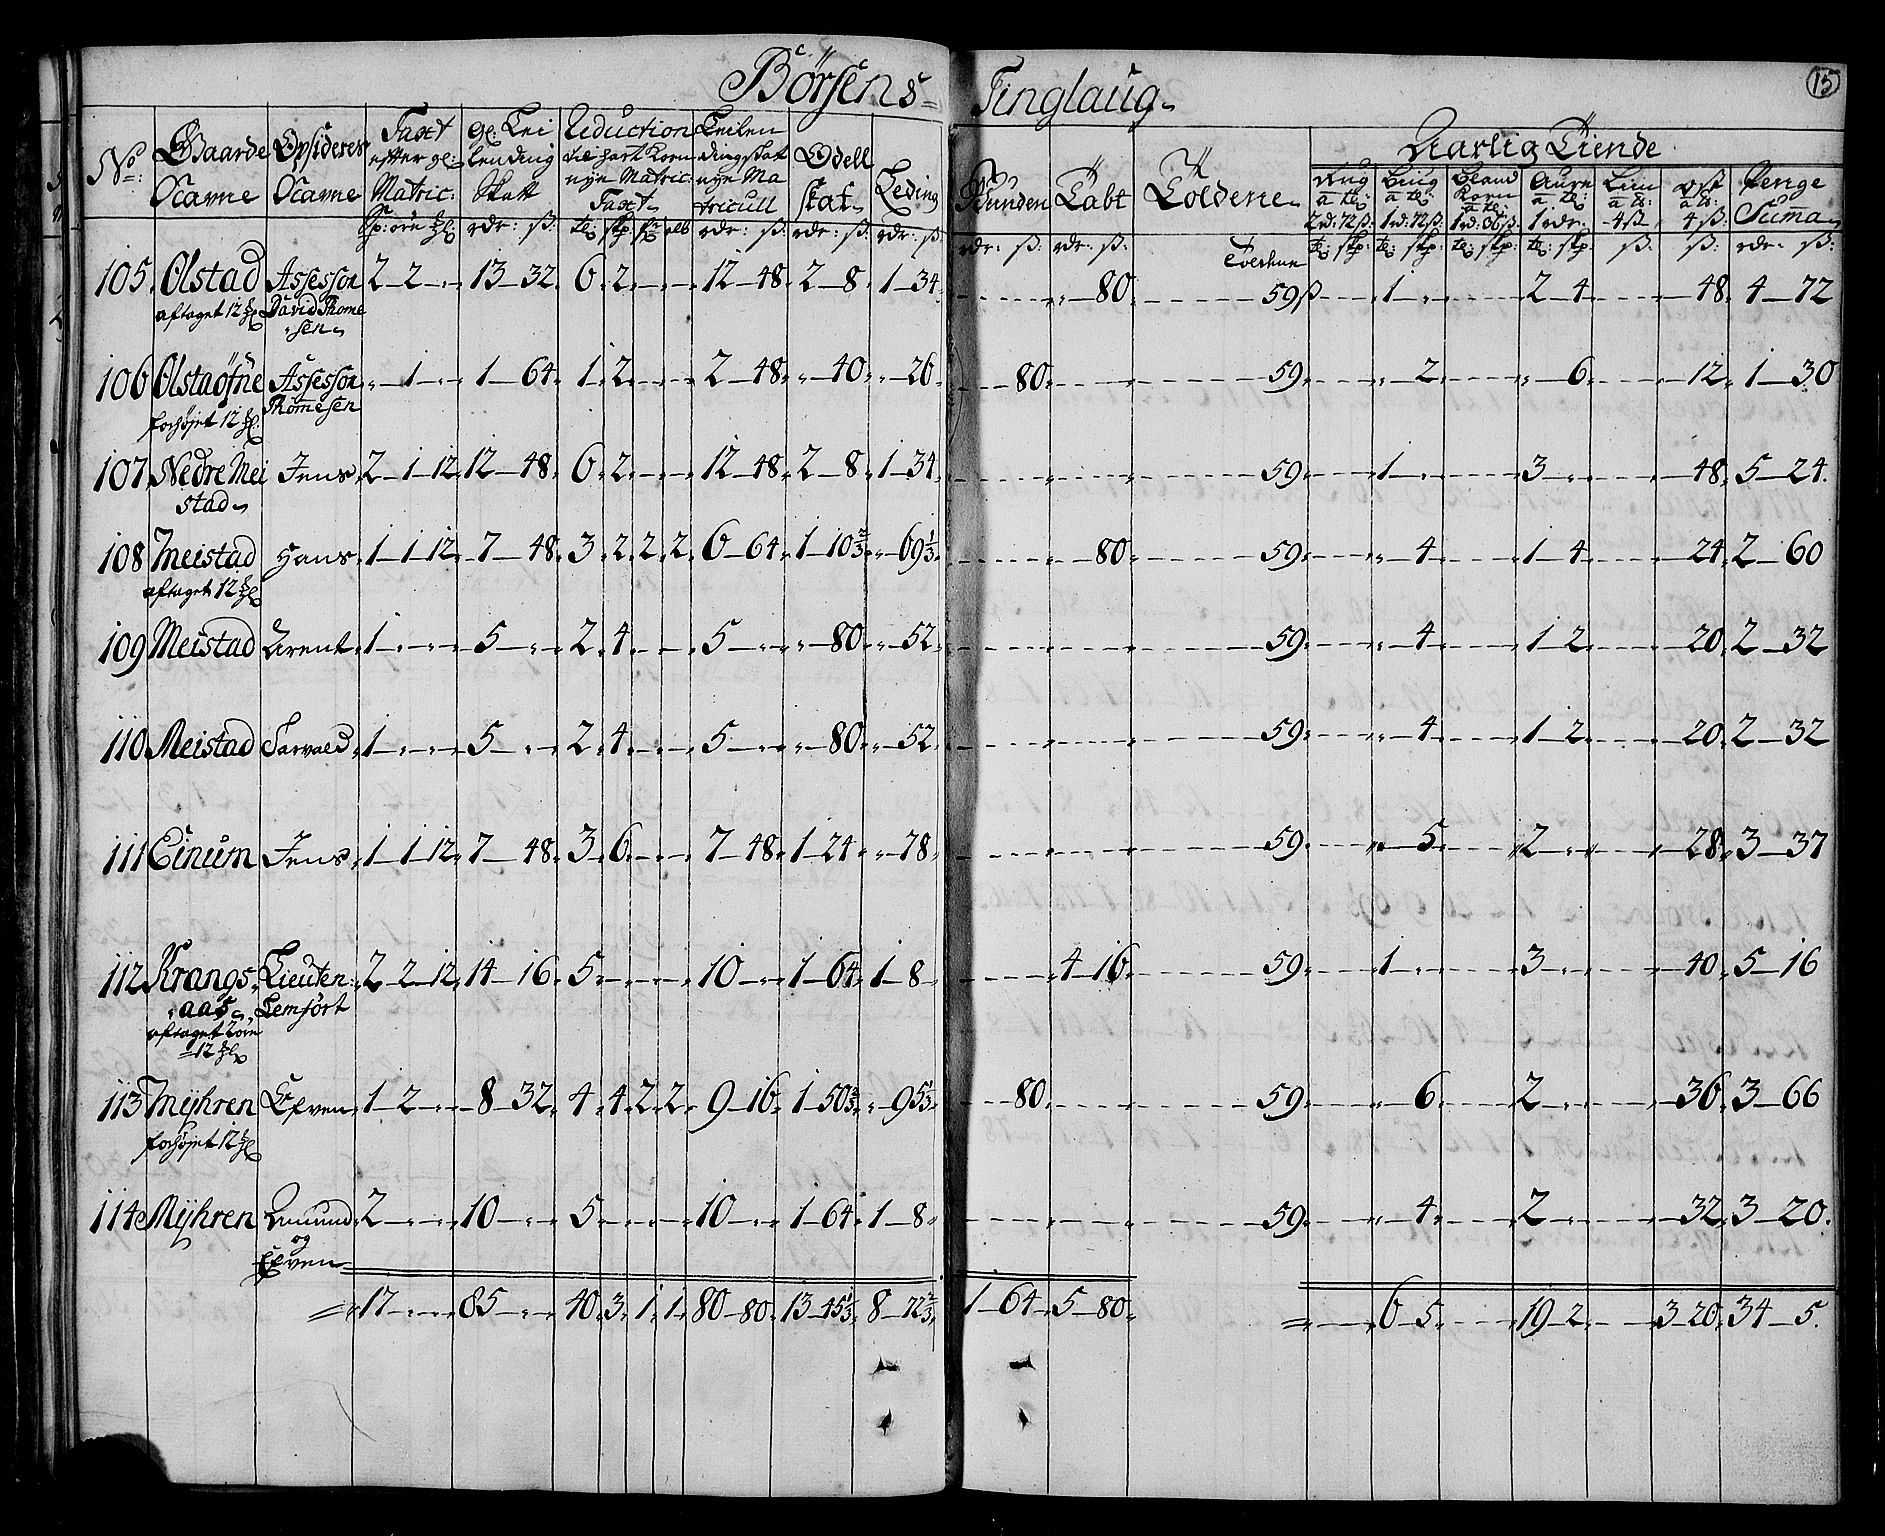 Börsens Tinglaug
15
No: Gaarde Nafvne Opsideres Nafvne Taxt efter gl: Matric: gl: Lei lending Skatt Reduction til hart Korn nye Matric: Taxt Leilen dings skat nye Ma tricull Odell skat Leding
Punden Labt Toldene Aarlig Tiende
Rug a tl: 2 rd: 72 ß Biug a tl: 1 rd: 72 ß Bland Korn a tl: 1 rd: 36 ß Aure a tl: 1 rdr: Liin a tl: 4 ß Ost a tl: 4 ß Penge Suma
Sp: öre rdr: ß: tl: skp: rdr: ß: rdr: ß: rdr: ß:
rdr: ß: rdr: ß: tl: skp: tl: skp: tl: skp: tl: skp: ß: ß: rdr: ß:
105 Olstad Assessor 2 2 13 32 6 2 12 48 2 8 1 34 80 59 ß 1 2 4 48 4 72
aftaget 12 David Thome
sen
106 Olstaöfne Assessor 1 1 64 1 2 2 48 40 26 80 59 2 6 12 1 30
forhöjet 12 Thomesen
107 Nedre Mei Jens 2 1 12 12 48 6 2 12 48 2 8 1 34 59 1 3 48 5 24
stad
108 Meistad Hans 1 1 12 7 48 3 2 2 2 6 64 1 10 2/3 69 1/3 80 59 4 1 4 24 2 60
aftaget 12
109 Meistad Arent 1 5 2 4 5 80 52 59 4 1 2 20 2 32
110 Meistad Tarvald 1 5 2 4 5 80 52 59 4 1 2 20 2 32
111 Einum Jens 1 1 12 7 48 3 6 7 48 1 24 78 59 5 2 28 3 37
112 Krangs Lieuten: 2 2 12 14 16 5 10 1 64 1 8 4 16 59 1 3 40 5 16
aas Lemfört
aftaget 2 öre
12
113 Myhren Esven 1 2 8 32 4 4 2 2 9 16 1 50 2/3 95 1/3 80 59 6 2 36 3 66
forhöjet 12
114 Myhren Amund 2 10 5 10 1 64 1 8 59 4 2 32 3 20
og
Esven
17 85 40 3 1 1 80 80 13 45 1/3 8 72 2/3 1 64 5 80 6 5 19 2 3 20 34 5